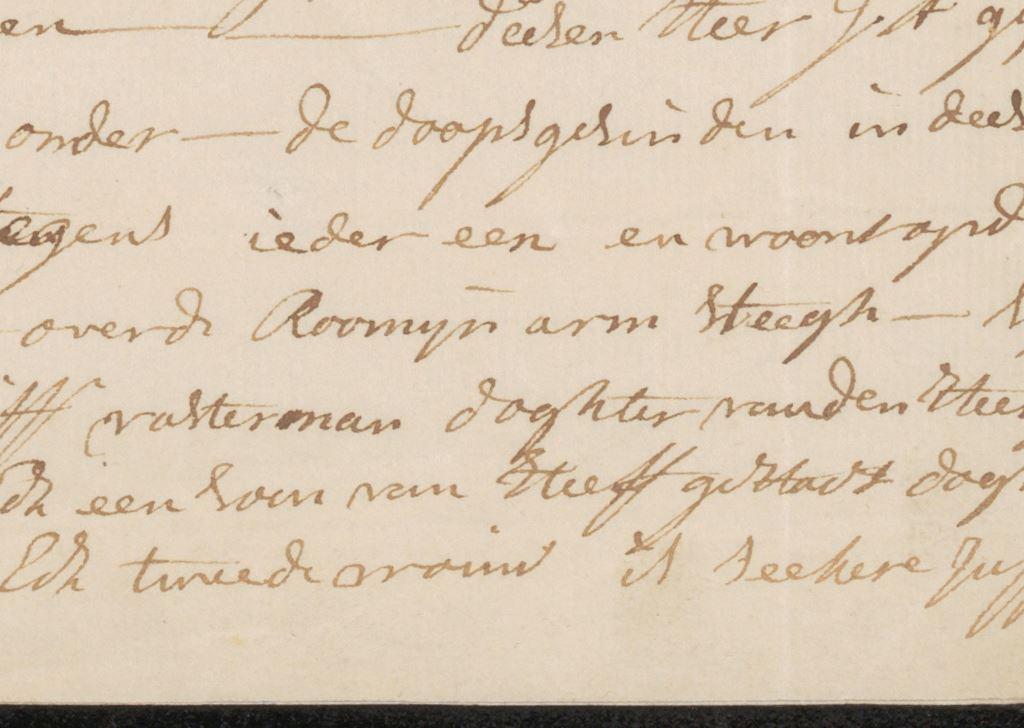 en deesen Heer Jst
onder — de doopsgesinden in dees
tegens ieder een en woont op d
overde Roomyn arm Steegh —
Jff vasterman doghter van den Heer
een soon van Heeff gehadt dogh
Ed: tweede vrouw is seekere Juff